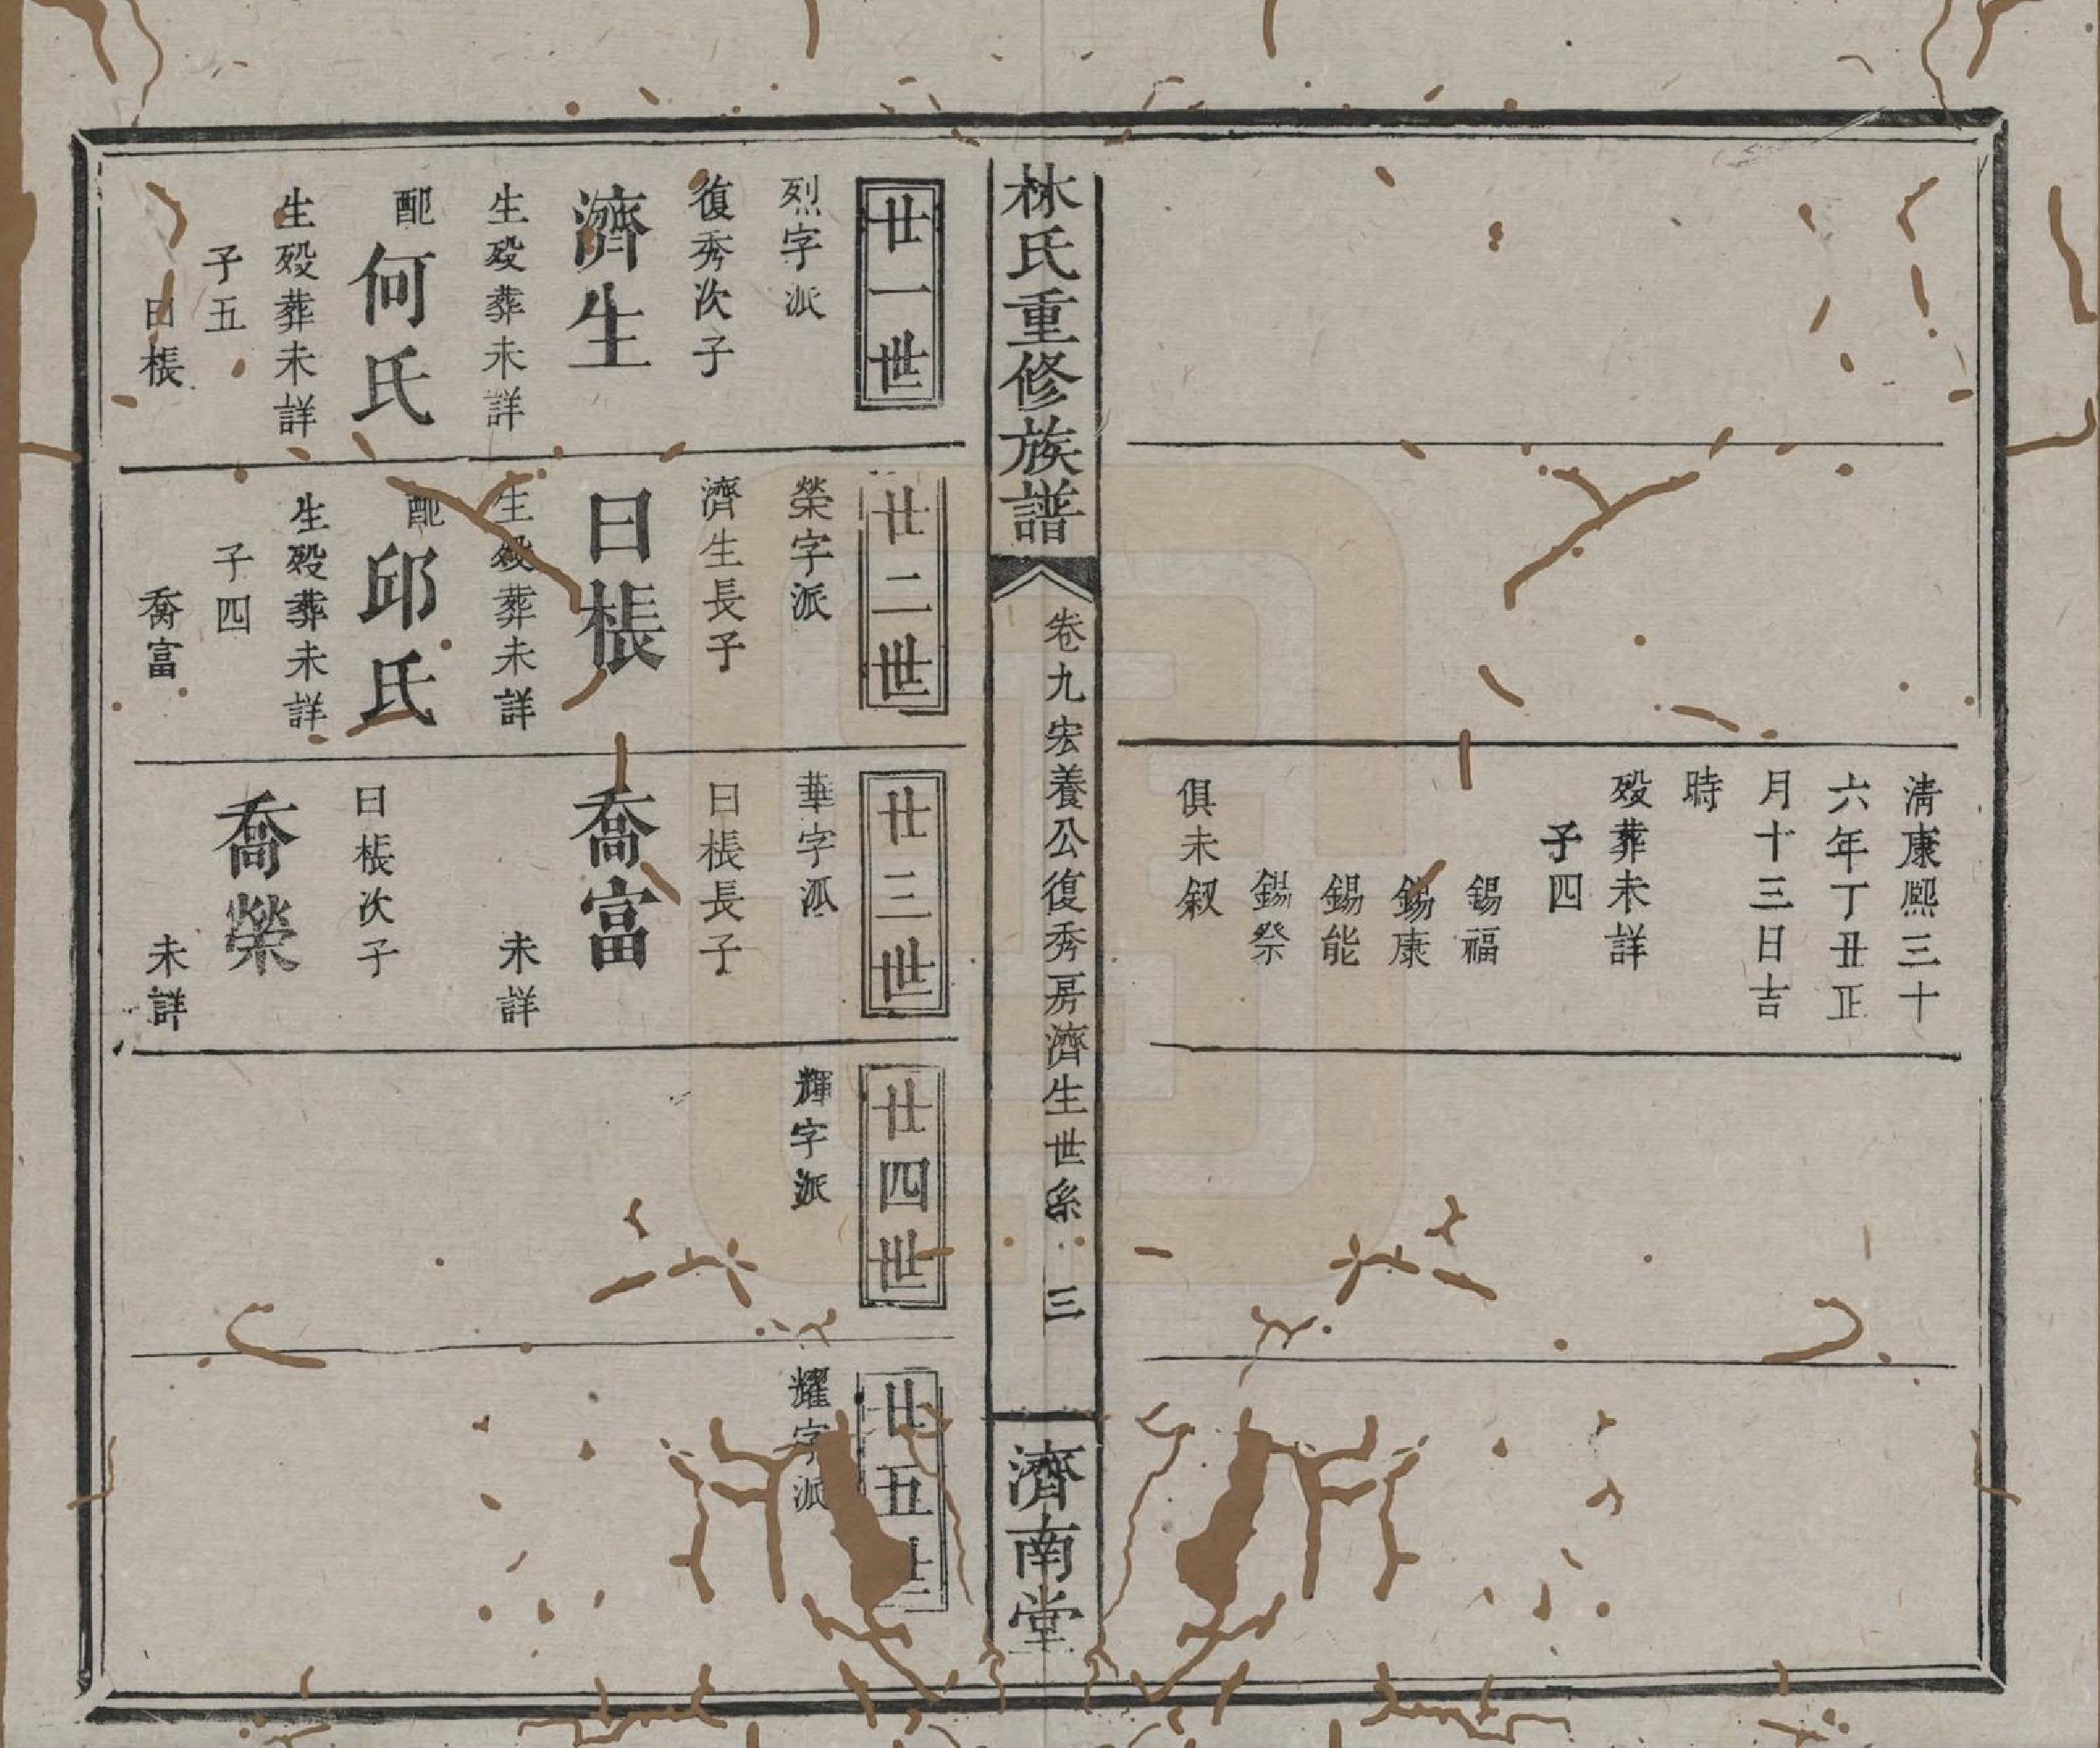 清康熙三十
六年丁丑正
月十三日吉
時
殁葬未詳
子四
錫福
錫康
錫能
錫祭
俱未叙
林氏重修族譜
卷九宏養公復秀房濟生世系
三
濟南堂
廿一世
烈字派
復秀次子
濟生
生殁葬未詳
配何氏
生殁葬未詳
子五
曰棖
廿二世
榮字派
濟生長子
曰棖
生殁葬未詳
配邱氏
生殁葬未詳
子四
喬富
廿三世
華字派
曰棖長子
喬富
未詳
曰棖次子
喬榮
未詳
廿四世
輝字派
廿五世
耀字派